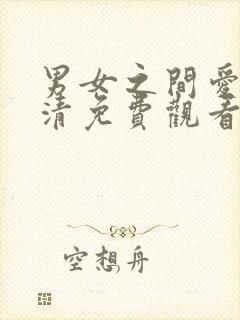 男女之間愛
清免費觀看
空想舟